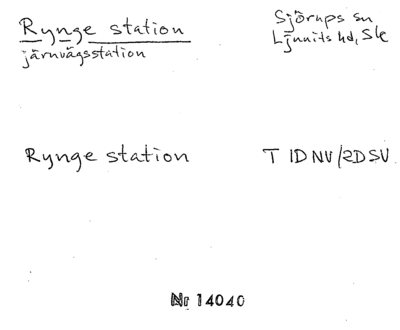 Rynge station
järnvägsstation
Sjörups sn
Ljunits hd, Sk
Rynge station
T 1D NV/2D SV
Nr 14040